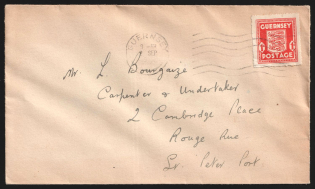 GUERNSEY
GUERNSEY
POSTAGE
Mr. L Bourgaize
Carpenter & Undertaker
2 Cambridge Place
Rouge Rue
St Peter Port